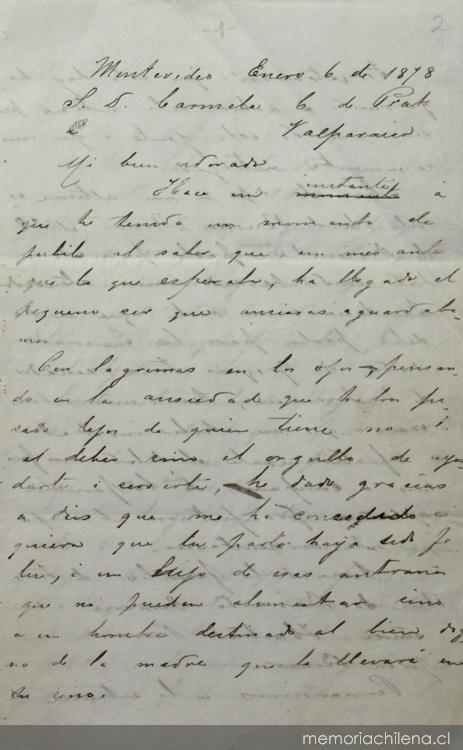 -1-
2
Montevideo Enero 6 de 1878
S. D. Carmela C de Prat
Valparaiso
Mi bien adorado
Hace un instantes a
que he tenido un momento de
jubilo al saber que un mes antes
que lo que esperaba, ha llegado el
pequeno ser que ansiosos aguardaba-
mos
Con lagrimas en los ojos i pensan-
do en la ansiedad que habras pa-
sado lejos de quien tiene no
el deber, sino el orgullo de ayu-
darte i servirte, he dado gracias
a dios que me ha concedido
quiera que tu parto haya sido fe-
liz, i un hijo de esas entrañas
que no pueden alimentar sino
a un hombre destinado al bien, dig-
no de la madre que lo llevará en
su seno.
memoriachilena.cl